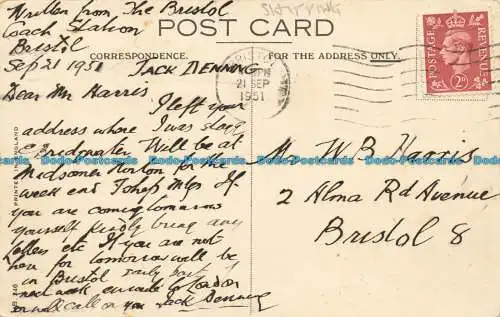 Written from The Bristol
Coach Station
Bristol
Sep 21 1951
JACK DENNING
POST CARD
CORRESPONDENCE.
FOR THE ADDRESS ONLY.
BRISTOL
PM
21 SEP
1951
POSTAGE
REVENUE
2D
Dear Mr Harris
I left your
address where I was
Bridgwater Will be at
Midsomer Norton for the
week end
If
you are coming tomorrow
yourself kindly bring any
letters etc If you are not
here for tomorrow will be
in Bristol early
next week enroute to London
or will call on you Jack Denning
Mr W B Harris
2 Alma Rd Avenue
Bristol 8
PRINTED IN ENGLAND
Dodo-Postcards Dodo-Postcards Dodo-Postcards Dodo-Postcards
Dodo-Postcards Dodo-Postcards Dodo-Postcards Dodo-Postcards